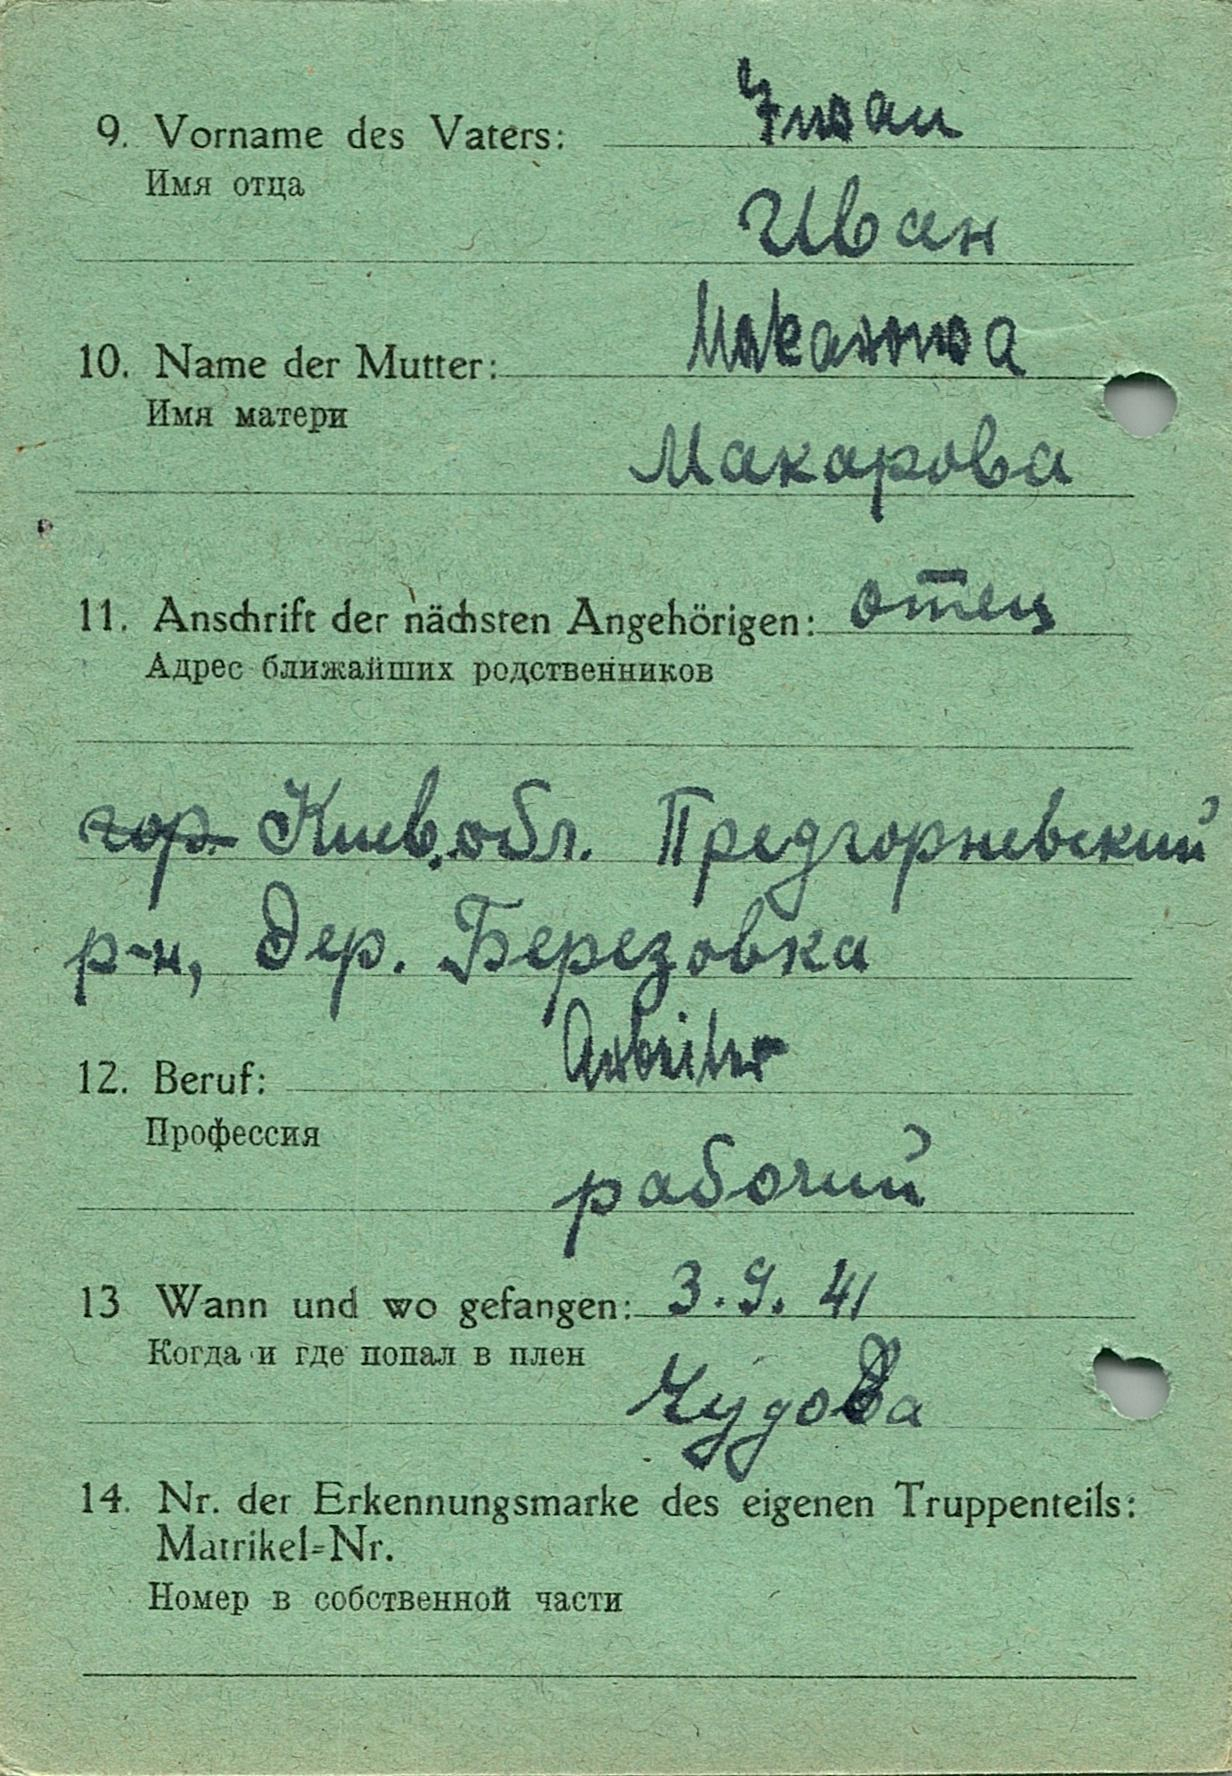 9. Vorname des Vaters: Iwan
Имя отца
Иван
10. Name der Mutter: Makarowa
Имя матери
Макарова
11. Anschrift der nächsten Angehörigen: отец
Адрес ближайших родственников
гор. Киев. обл. Предгорневский
р-н, дер. Березовка
Arbeiter
12. Beruf:
Профессия
рабочий
13 Wann und wo gefangen: 3. 9. 41
Когда и где попал в плен
Чудова
14. Nr. der Erkennungsmarke des eigenen Truppenteils:
Matrikel-Nr.
Номер в собственной части